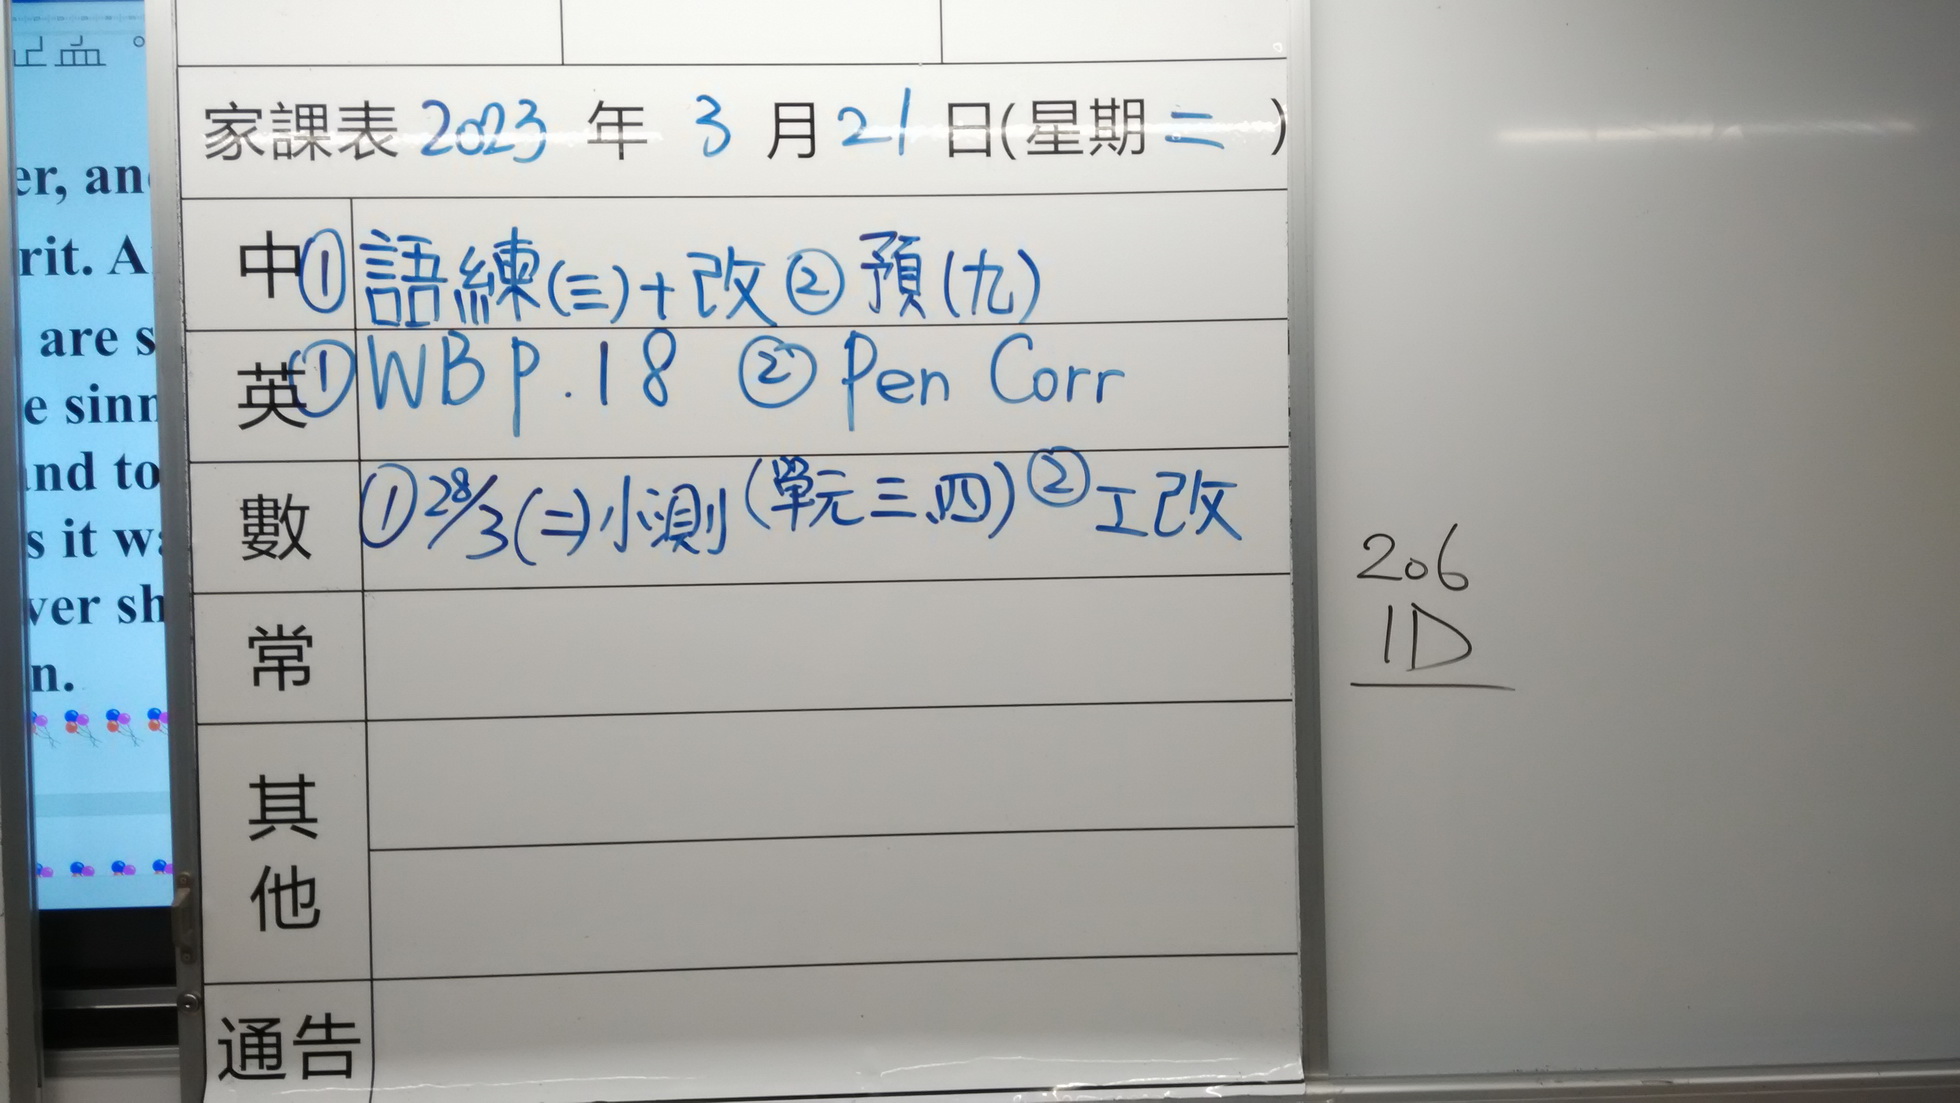 er, an
rit. A
are s
e sinn
nd to
s it w
ver sh
n.
家課表 2023 年 3 月 21 日(星期 二 )
中 ① 語練(三)+改 ② 預(九)
英 ① WB P.18 ② Pen Corr
數 ① 28/3(二)小測(單元三、四) ② 工改
常
其他
通告
206
1D